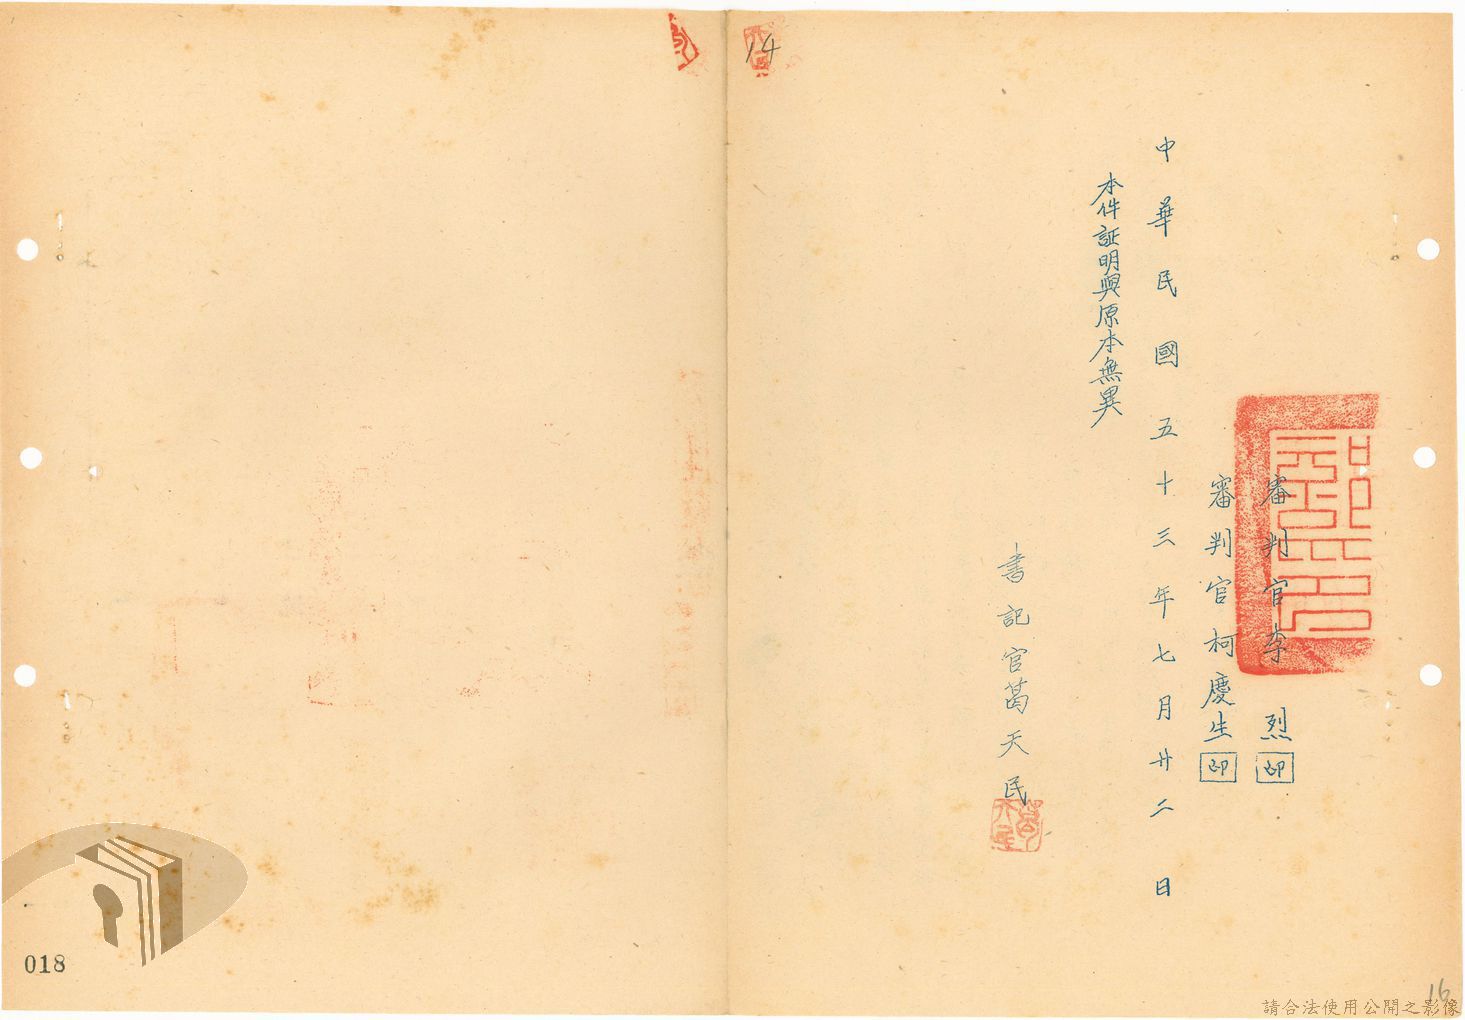 審判官李烈印
審判官柯慶生印
中華民國五十三年七月廿二日
本件証明與原本無異
書記官葛天民
葛天民
14
018
16
請合法使用公開之影像